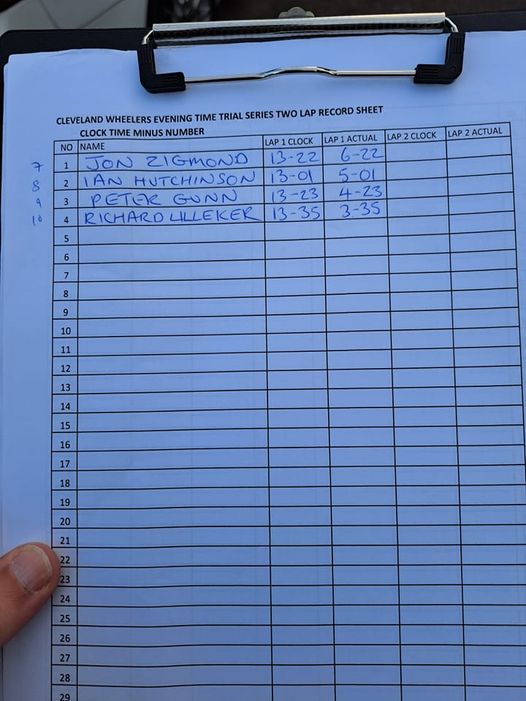 CLEVELAND WHEELERS EVENING TIME TRIAL SERIES TWO LAP RECORD SHEET
CLOCK TIME MINUS NUMBER
NO NAME LAP 1 CLOCK LAP 1 ACTUAL LAP 2 CLOCK LAP 2 ACTUAL
7 1 JON ZIGMOND 13-22 6-22
8 2 IAN HUTCHINSON 13-01 5-01
9 3 PETER GUNN 13-23 4-23
10 4 RICHARD LILLEKER 13-35 3-35
5
6
7
8
9
10
11
12
13
14
15
16
17
18
19
20
21
22
23
24
25
26
27
28
29